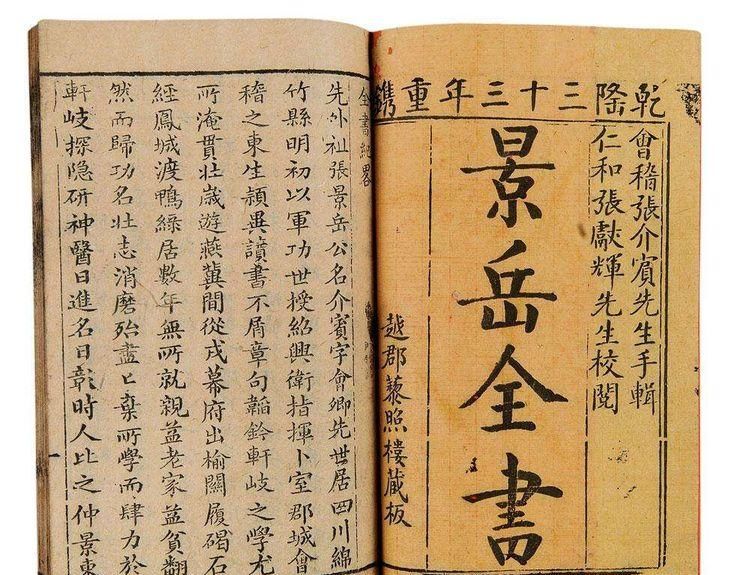 乾隆三十三年重鐫
會稽張介賓先生手輯
仁和張獻輝先生校閱
景岳全書
越郡藜照樓藏板
全書紀畧
先外祖張景岳公名介賓字會卿先世居四川綿
竹縣明初以軍功世授紹興衛指揮卜室郡城會
稽之東生穎異讀書不屑章句韜鈐軒岐之學尤
所淹貫壯歲遊燕冀間從戎幕府出榆關履碣石
經鳳城渡鴨綠居數年無所就親益老家益貧翻
然而歸功名壯志消磨殆盡〻棄所學而肆力於
軒岐探隱研神醫日進名日彰時人比之仲景東